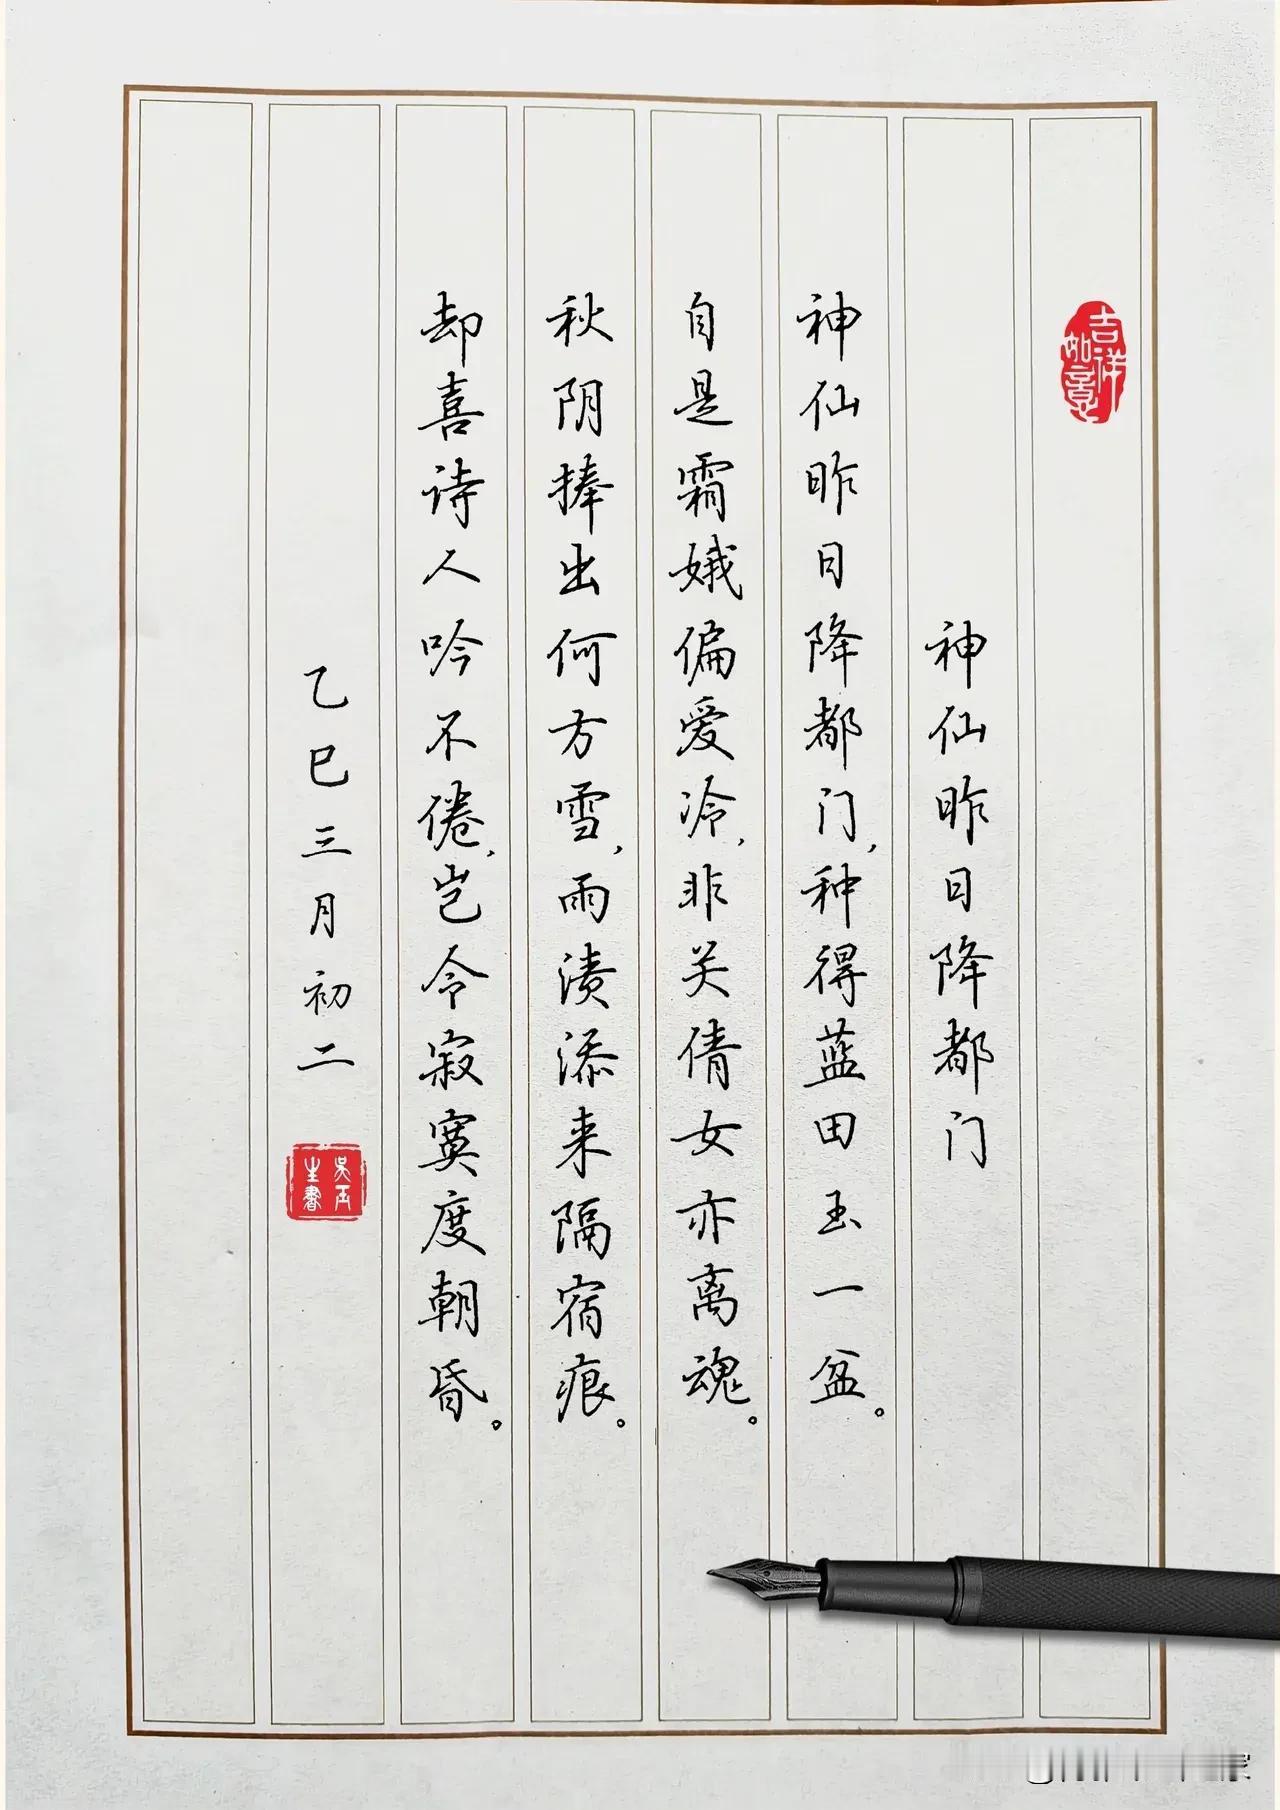 吉祥如意
神仙昨日降都门
神仙昨日降都门，种得蓝田玉一盆。
自是霜娥偏爱冷，非关倩女亦离魂。
秋阴捧出何方雪，雨渍添来隔宿痕。
却喜诗人吟不倦，岂令寂寞度朝昏。
乙巳三月初二